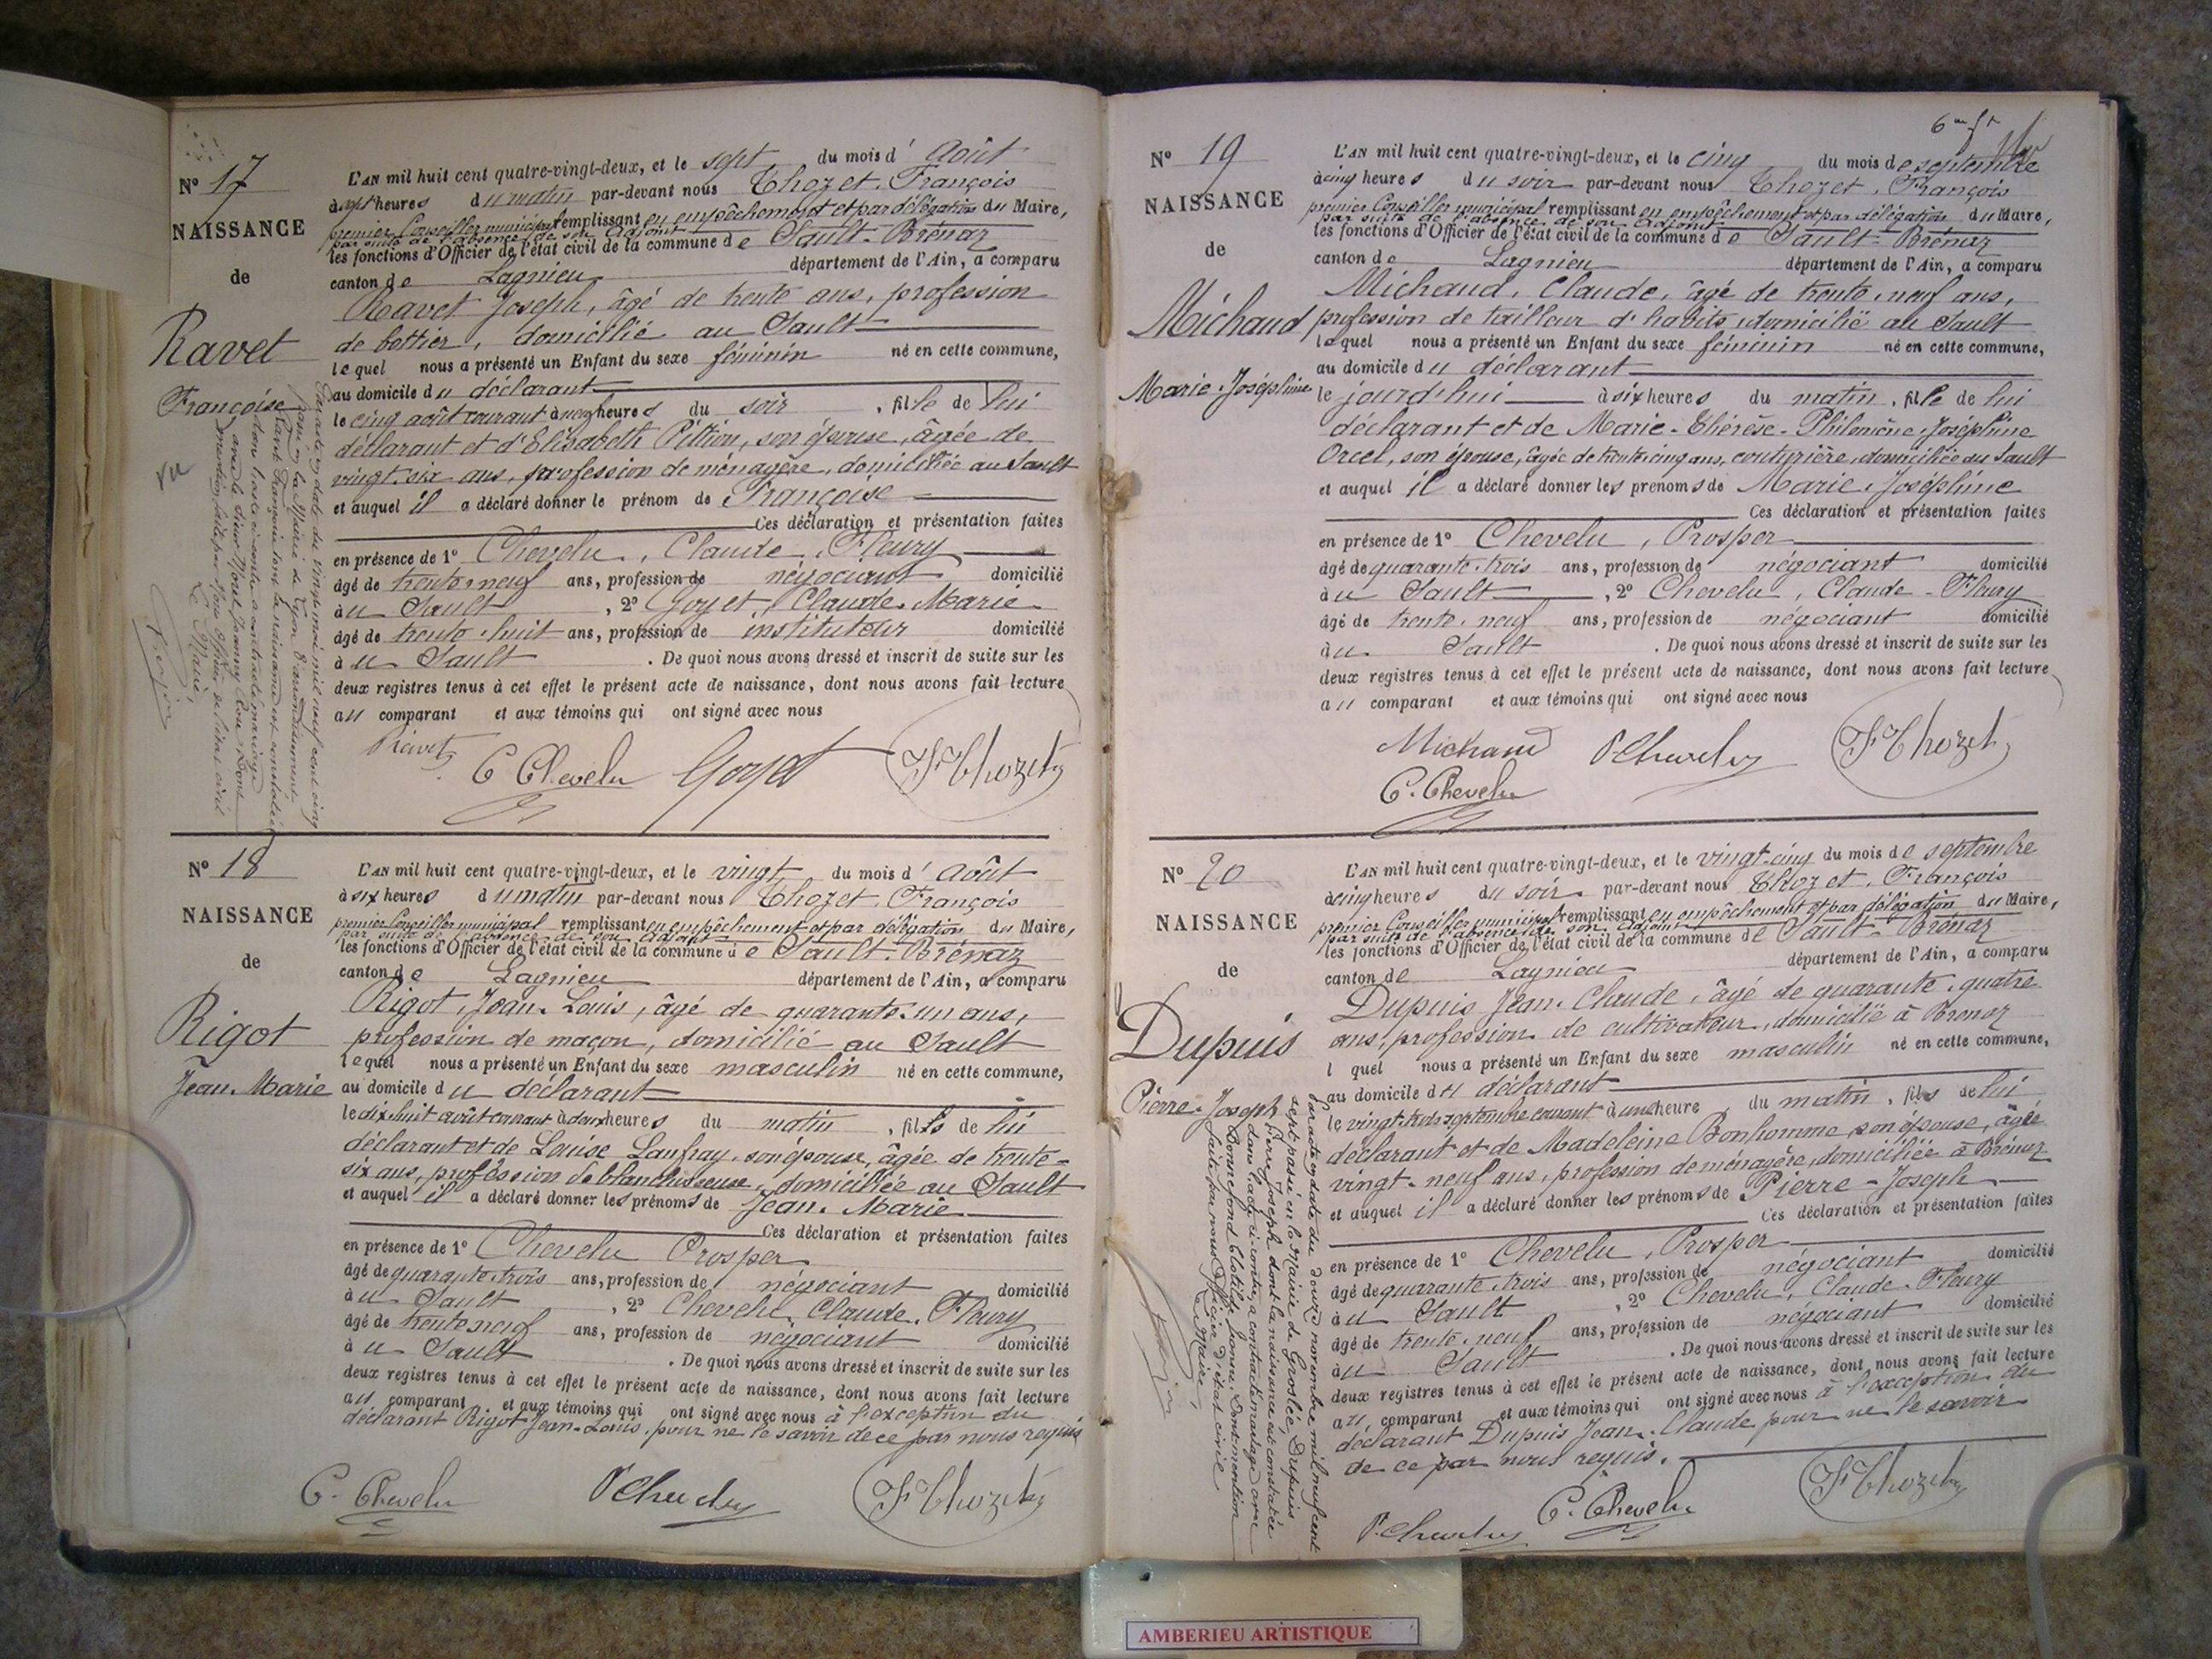 N° 17
NAISSANCE
de
Ravet
Françoise
vu
L'AN mil huit cent quatre-vingt-deux, et le sept du mois d' Août
à sept heures du matin par-devant nous Thozet, François
premier Conseiller municipal remplissant en empêchement et par délégation du Maire,
par suite de l'absence de son Adjoint
les fonctions d'Officier de l'état civil de la commune de Sault-Brénaz
canton de Lagnieu département de l'Ain, a comparu
Ravet Joseph, âgé de trente ans, profession
de bottier, domicilié au Sault
lequel nous a présenté un Enfant du sexe féminin né en cette commune,
au domicile du déclarant
le cinq août courant à heures du soir, fille de lui
déclarant et d'Elisabeth Pittion, son épouse, âgée de
vingt-six ans, profession de ménagère, domiciliée au Sault
et auquel il a déclaré donner le prénom de Françoise
Ces déclaration et présentation faites
en présence de 1° Chevelu, Claude, Fleury
âgé de trente-neuf ans, profession de négociant domicilié
au Sault, 2° Goyet, Claude-Marie
âgé de trente-huit ans, profession de instituteur domicilié
au Sault. De quoi nous avons dressé et inscrit de suite sur les
deux registres tenus à cet effet le présent acte de naissance, dont nous avons fait lecture
au comparant et aux témoins qui ont signé avec nous
Ravet
C. Chevelu Goyet F Thozet
Par acte en date du vingt mai mil neuf cent cinq
passé en la Mairie de Lyon arrondissement
Ravet Françoise dont la naissance est constatée
dans l'acte ci-contre a contracté mariage
avec le sieur Dont
mention faite par Nous Officier de l'état civil
Le Maire,
N° 18
NAISSANCE
de
Rigot
Jean-Marie
L'AN mil huit cent quatre-vingt-deux, et le vingt du mois d' Août
à six heures du matin par-devant nous Thozet, François
premier Conseiller municipal remplissant en empêchement et par délégation du Maire,
par suite de l'absence de son Adjoint
les fonctions d'Officier de l'état civil de la commune de Sault-Brénaz
canton de Lagnieu département de l'Ain, a comparu
Rigot, Jean-Louis, âgé de quarante-un ans,
profession de maçon, domicilié au Sault
lequel nous a présenté un Enfant du sexe masculin né en cette commune,
au domicile du déclarant
le dix-huit août courant à deux heures du matin, fils de lui
déclarant et de Louise Lanfray, son épouse, âgée de trente-
six ans, profession de blanchisseuse, domiciliée au Sault
et auquel il a déclaré donner les prénoms de Jean-Marie
Ces déclaration et présentation faites
en présence de 1° Chevelu Prosper
âgé de quarante-trois ans, profession de négociant domicilié
au Sault, 2° Chevelu, Claude-Fleury
âgé de trente-neuf ans, profession de négociant domicilié
au Sault. De quoi nous avons dressé et inscrit de suite sur les
deux registres tenus à cet effet le présent acte de naissance, dont nous avons fait lecture
au comparant et aux témoins qui ont signé avec nous à l'exception du
déclarant Rigot Jean-Louis, pour ne le savoir de ce par nous requis
C. Chevelu P. Chevelu F Thozet
N° 19
NAISSANCE
de
Michaud
Marie-Joséphine
L'AN mil huit cent quatre-vingt-deux, et le cinq du mois de septembre
à cinq heures du soir par-devant nous Thozet, François
premier Conseiller municipal remplissant en empêchement et par délégation du Maire,
par suite de l'absence de son Adjoint
les fonctions d'Officier de l'état civil de la commune de Sault-Brénaz
canton de Lagnieu département de l'Ain, a comparu
Michaud, Claude, âgé de trente-neuf ans,
profession de tailleur d'habits, domicilié au Sault
lequel nous a présenté un Enfant du sexe féminin né en cette commune,
au domicile du déclarant
le jourd'hui à six heures du matin, fille de lui
déclarant et de Marie-Thérèse-Philomène-Joséphine
Orcel, son épouse, âgée de trente-cinq ans, couturière, domiciliée au Sault
et auquel il a déclaré donner les prénoms de Marie-Joséphine
Ces déclaration et présentation faites
en présence de 1° Chevelu, Prosper
âgé de quarante-trois ans, profession de négociant domicilié
au Sault, 2° Chevelu, Claude-Fleury
âgé de trente-neuf ans, profession de négociant domicilié
au Sault. De quoi nous avons dressé et inscrit de suite sur les
deux registres tenus à cet effet le présent acte de naissance, dont nous avons fait lecture
au comparant et aux témoins qui ont signé avec nous
Michaud P. Chevelu F Thozet
C. Chevelu
N° 20
NAISSANCE
de
Dupuis
Pierre-Joseph
L'AN mil huit cent quatre-vingt-deux, et le vingt-cinq du mois de septembre
à cinq heures du soir par-devant nous Thozet, François
premier Conseiller municipal remplissant en empêchement et par délégation du Maire,
par suite de l'absence de son Adjoint
les fonctions d'Officier de l'état civil de la commune de Sault-Brénaz
canton de Lagnieu département de l'Ain, a comparu
Dupuis Jean-Claude, âgé de quarante-quatre
ans, profession de cultivateur, domicilié à Brénaz
l quel nous a présenté un Enfant du sexe masculin né en cette commune,
au domicile du déclarant
le vingt-trois septembre courant à une heure du matin, fils de lui
déclarant et de Madeleine Bonhomme, son épouse, âgée
vingt-neuf ans, profession de ménagère, domiciliée à Brénaz
et auquel il a déclaré donner les prénoms de Pierre-Joseph
Ces déclaration et présentation faites
en présence de 1° Chevelu, Prosper
âgé de quarante-trois ans, profession de négociant domicilié
au Sault, 2° Chevelu, Claude-Fleury
âgé de trente-neuf ans, profession de négociant domicilié
au Sault. De quoi nous avons dressé et inscrit de suite sur les
deux registres tenus à cet effet le présent acte de naissance, dont nous avons fait lecture
au comparant et aux témoins qui ont signé avec nous à l'exception du
déclarant Dupuis Jean-Claude pour ne le savoir
de ce par nous requis.
P. Chevelu C. Chevelu F Thozet
Par acte en date du douze novembre mil neuf cent
sept passé en la Mairie de Groslée, Dupuis
Pierre Joseph dont la naissance est constatée
dans l'acte ci-contre, a contracté mariage avec
Bonnefond Clotilde Dont mention
faite par nous Officier d'état civil
Le Maire,
AMBERIEU ARTISTIQUE